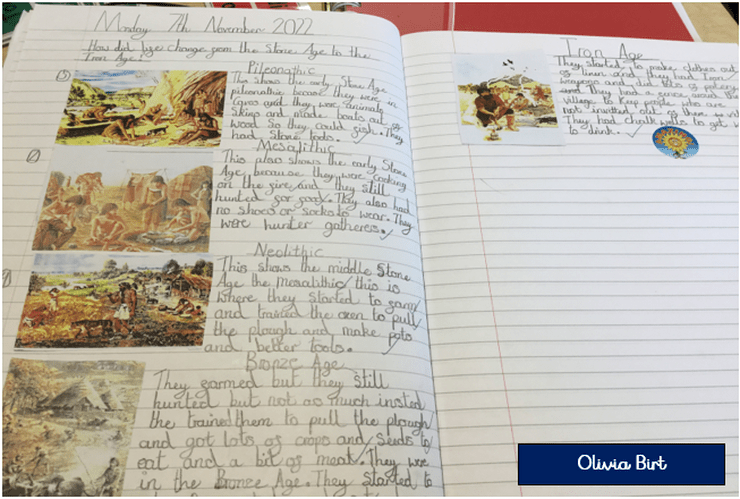 Monday 7th November 2022
How did life change from the Stone Age to the
Iron Age?
Pileonathic
This shows the early Stone Age
pileonathic because they were in
Caves and they were animals
Skins and made boats out of
wood So they could fish. They
had Stone tools.
Mesalithic
This plao shows the early Stone
Age because they were cooking
on the fire and they still
hunted for food. They also had
no shoes or socks to wear. They
were hunter gatherers.
Neolithic
This shows the middle Stone
Age the Mosalithic this is
where they started to farm
and trained the oxen to pull
the plough and make pots
and better tools.
Bronze Age
They farmed but they still
hunted but not as much insted
the trained them to pull the plough
and got lots of crops and Seeds to
eat and a bit of meat. They were
in the Bronze Age. They started to
Iron Age
They started to make clothes out
of linen and they had Iron
weapons and lots of potery
and They had a fence around the
village to keep people who are
not invited
They had chalk walls to get
to drink.
Olivia Birt